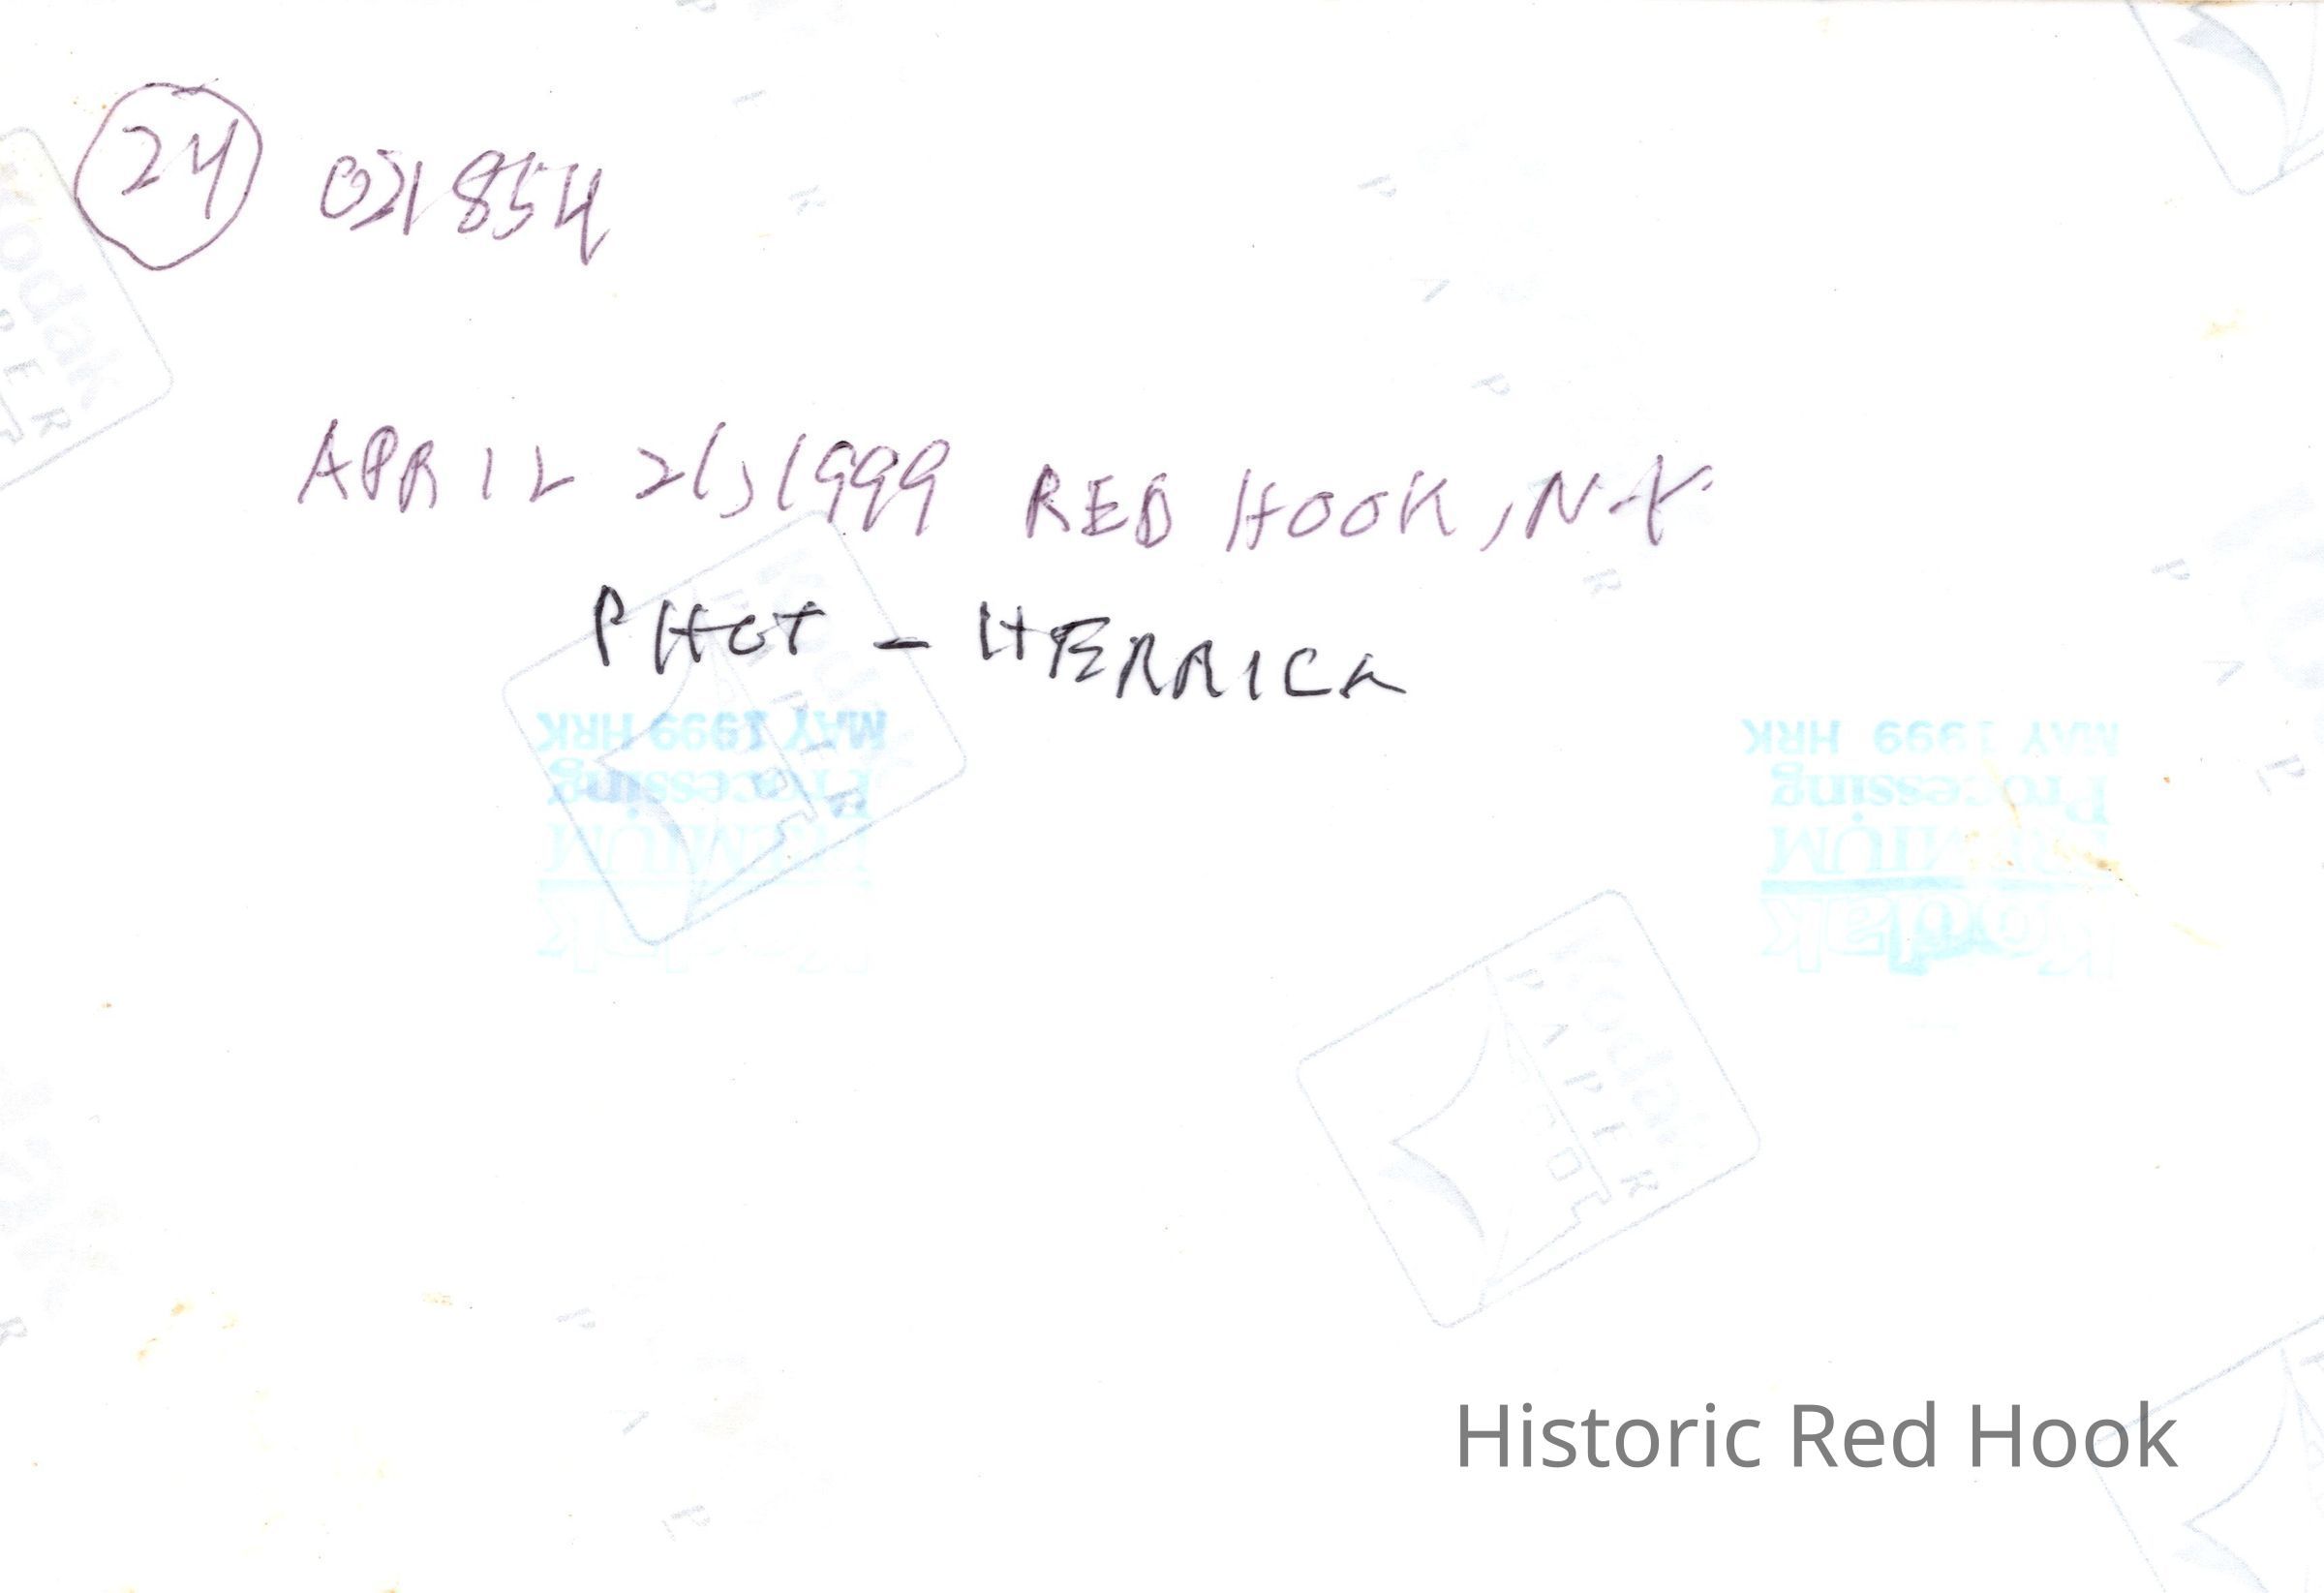 24 021854
APRIL 21,1999 RED HOOK, NY
PHOT - HERRICK
MAY 1999 HRK
Processing
PREMIUM
Kodak
MAY 1999 HRK
Processing
PREMIUM
Kodak
Kodak
PAPER
Kodak
PAPER
Kodak
PAPER
Historic Red Hook